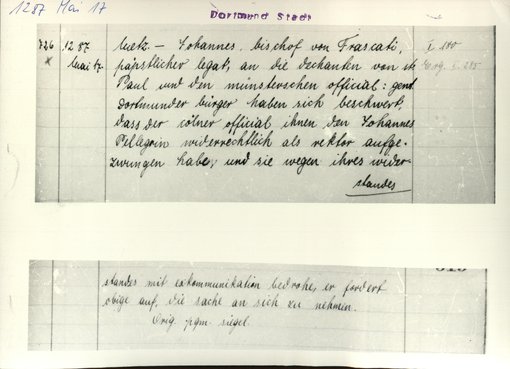 1287 Mai 17
Dortmund Stadt
326 1287 Metz – Johannes, bischof von Frascati, I 180
x Mai 17. päpstlicher legat, an die dechanten von st. Erg. I. 285
Paul und den münsterschen official: gent
dortmunder bürger haben sich beschwert,
dass der cölner official ihnen den Johannes
Pellegrin widerrechtlich als rektor aufge-
zwungen habe, und sie wegen ihres wider-
standes
standes mit exkommunikation bedrohe, er fordert
obige auf, die sache an sich zu nehmen.
Orig. pgm. siegel.